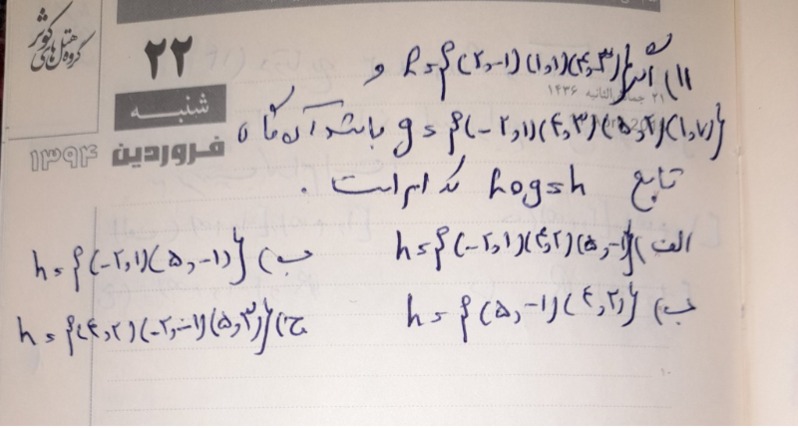 گروه هتل های کوثر
۲۲
شنبه
فروردین
۱۳۹۴
۲۱ جمادی الثانیه ۱۴۳۶
۱۱) اگر f={(۲,-۱)(۱,۱)(۴,۳)} و
g={(-۲,۱)(۴,۳)(۵,۲)(۱,۷)} باشد آن گاه
تابع fog=h کدام است.
الف) h={(-۲,۱)(۴,۲)(۵,-۱)}
ب) h={(-۲,۱)(۵,-۱)}
ب) h={(۵,-۱)(۴,۲)}
ج) h={(۴,۲)(-۲,-۱)(۵,۳)}